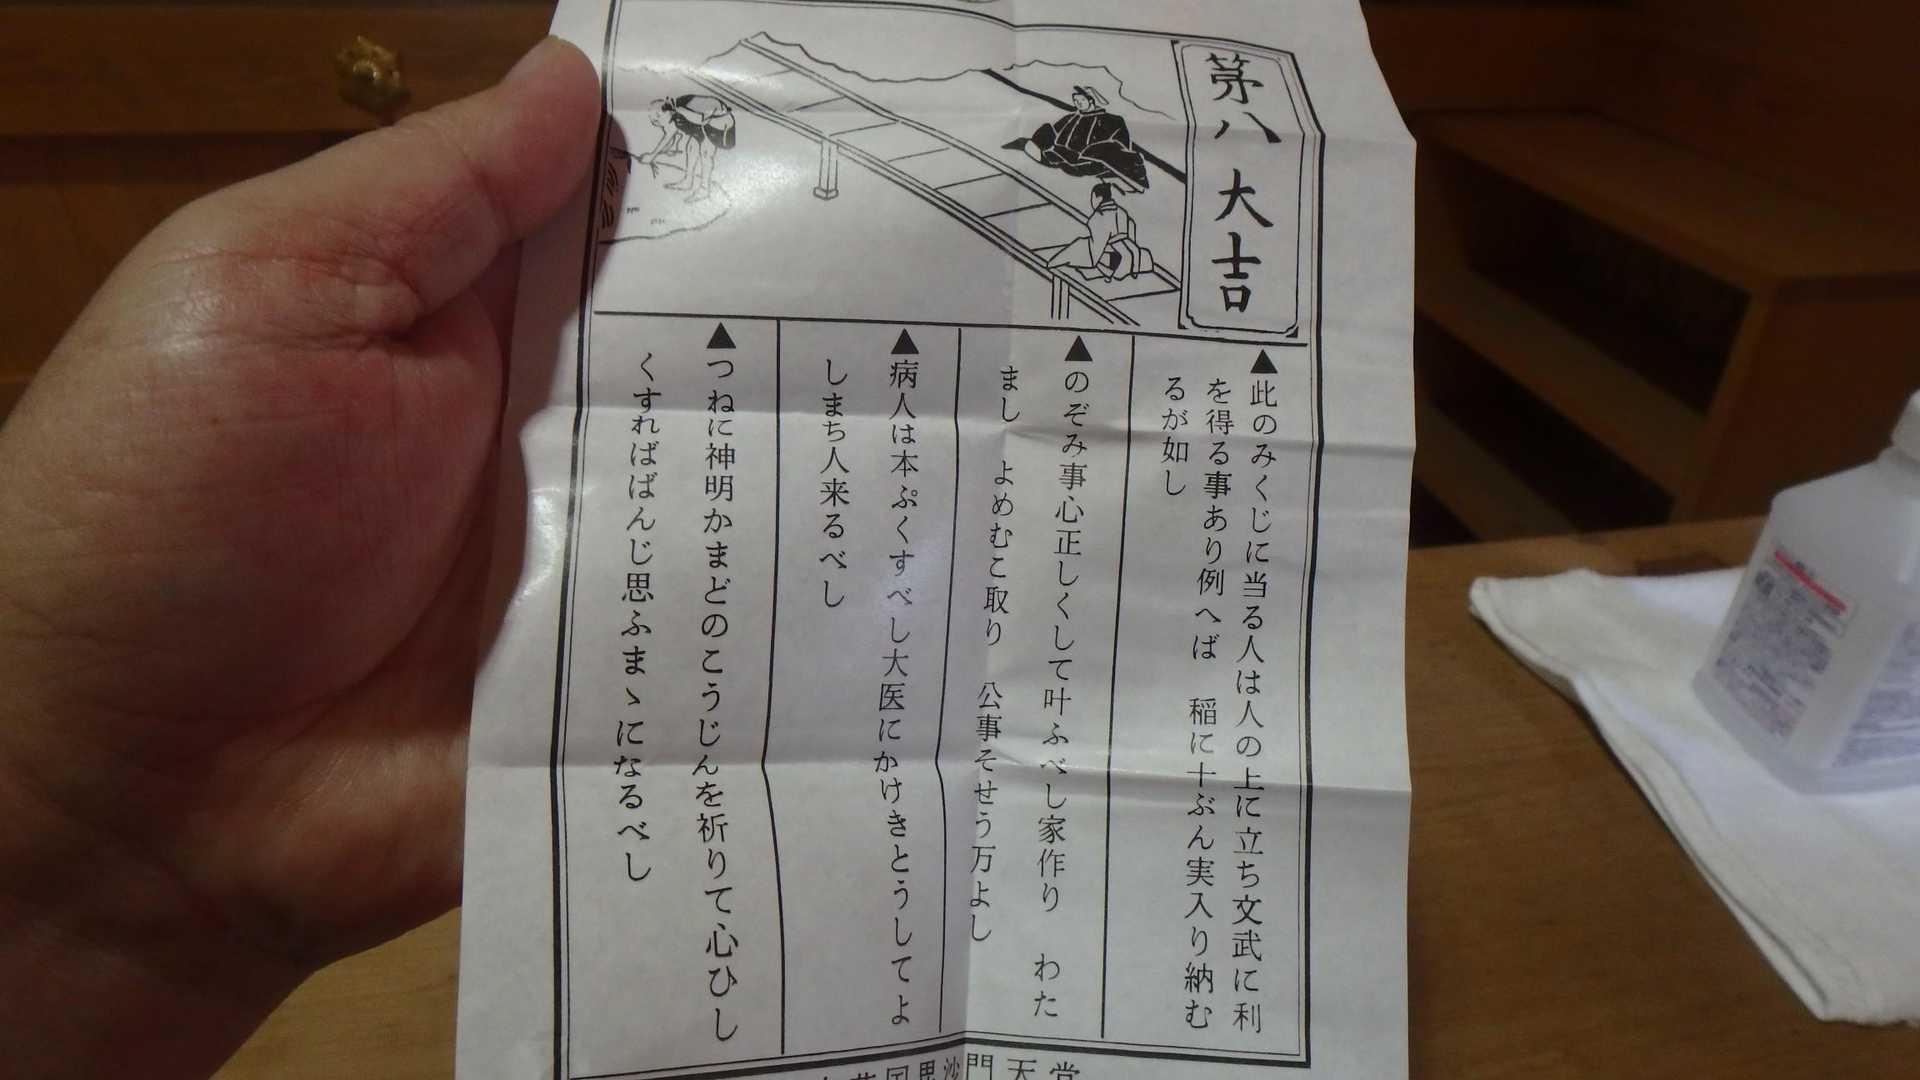 第八 大吉
▲此のみくじに当る人は人の上に立ち文武に利
を得る事あり例へば 稲に十ぶん実入り納む
るが如し
▲のぞみ事心正しくして叶ふべし家作り わた
まし よめむこ取り 公事そせう万よし
▲病人は本ぷくすべし大医にかけきとうしてよ
しまち人来るべし
▲つねに神明かまどのこうじんを祈りて心ひし
くすればばんじ思ふまゝになるべし
国毘沙門天堂